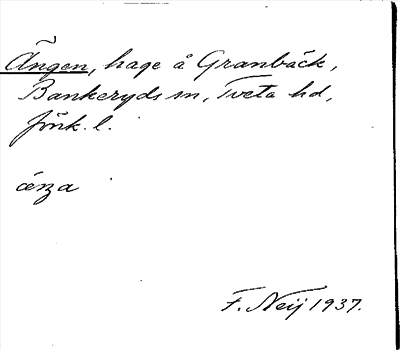 Ängen, hage å Granbäck,
Bankeryds sn, Tveta hd,
Jönk. l.
F. Neij 1937.